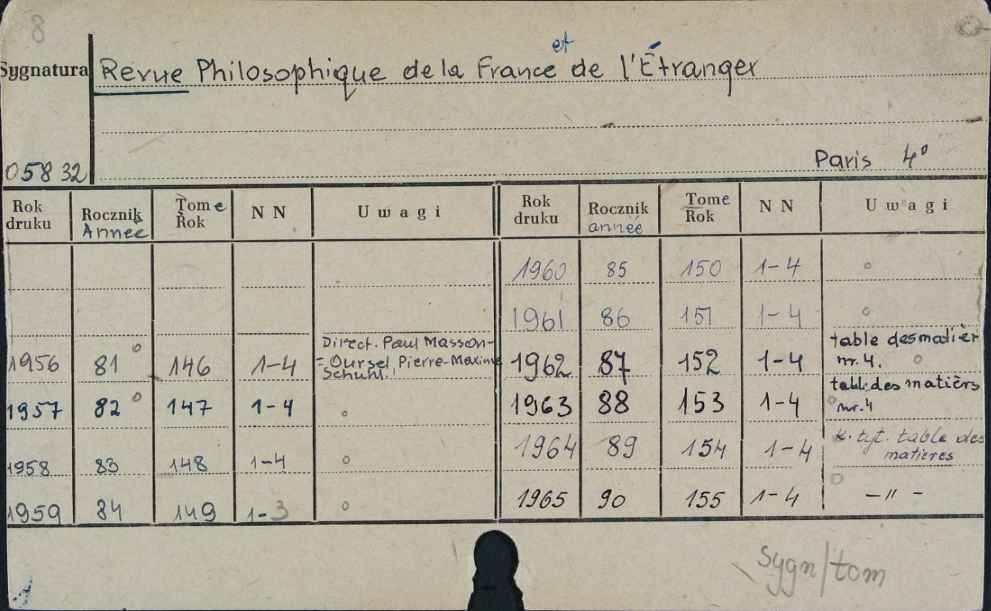 8
et
Sygnatura Revue Philosophique de la France de l'Étranger
05832 Paris 4°
Rok druku Rocznik Année Tome Rok NN Uwagi Rok druku Rocznik année Tome Rok NN Uwagi
1960 85 150 1-4 °
1961 86 151 1-4 °
1956 81° 146 1-4 Direct. Paul Masson-
=Oursel, Pierre-Maxime
Schuhl. 1962 87 152 1-4 table des matièr
nr. 4. °
1957 82° 147 1-4 ° 1963 88 153 1-4 table des matièrs
° nr. 4
1958 83 148 1-4 ° 1964 89 154 1-4 k. tyt. table des
matieres
1959 84 149 1-3 ° 1965 90 155 1-4 ° -"-
sygn/tom